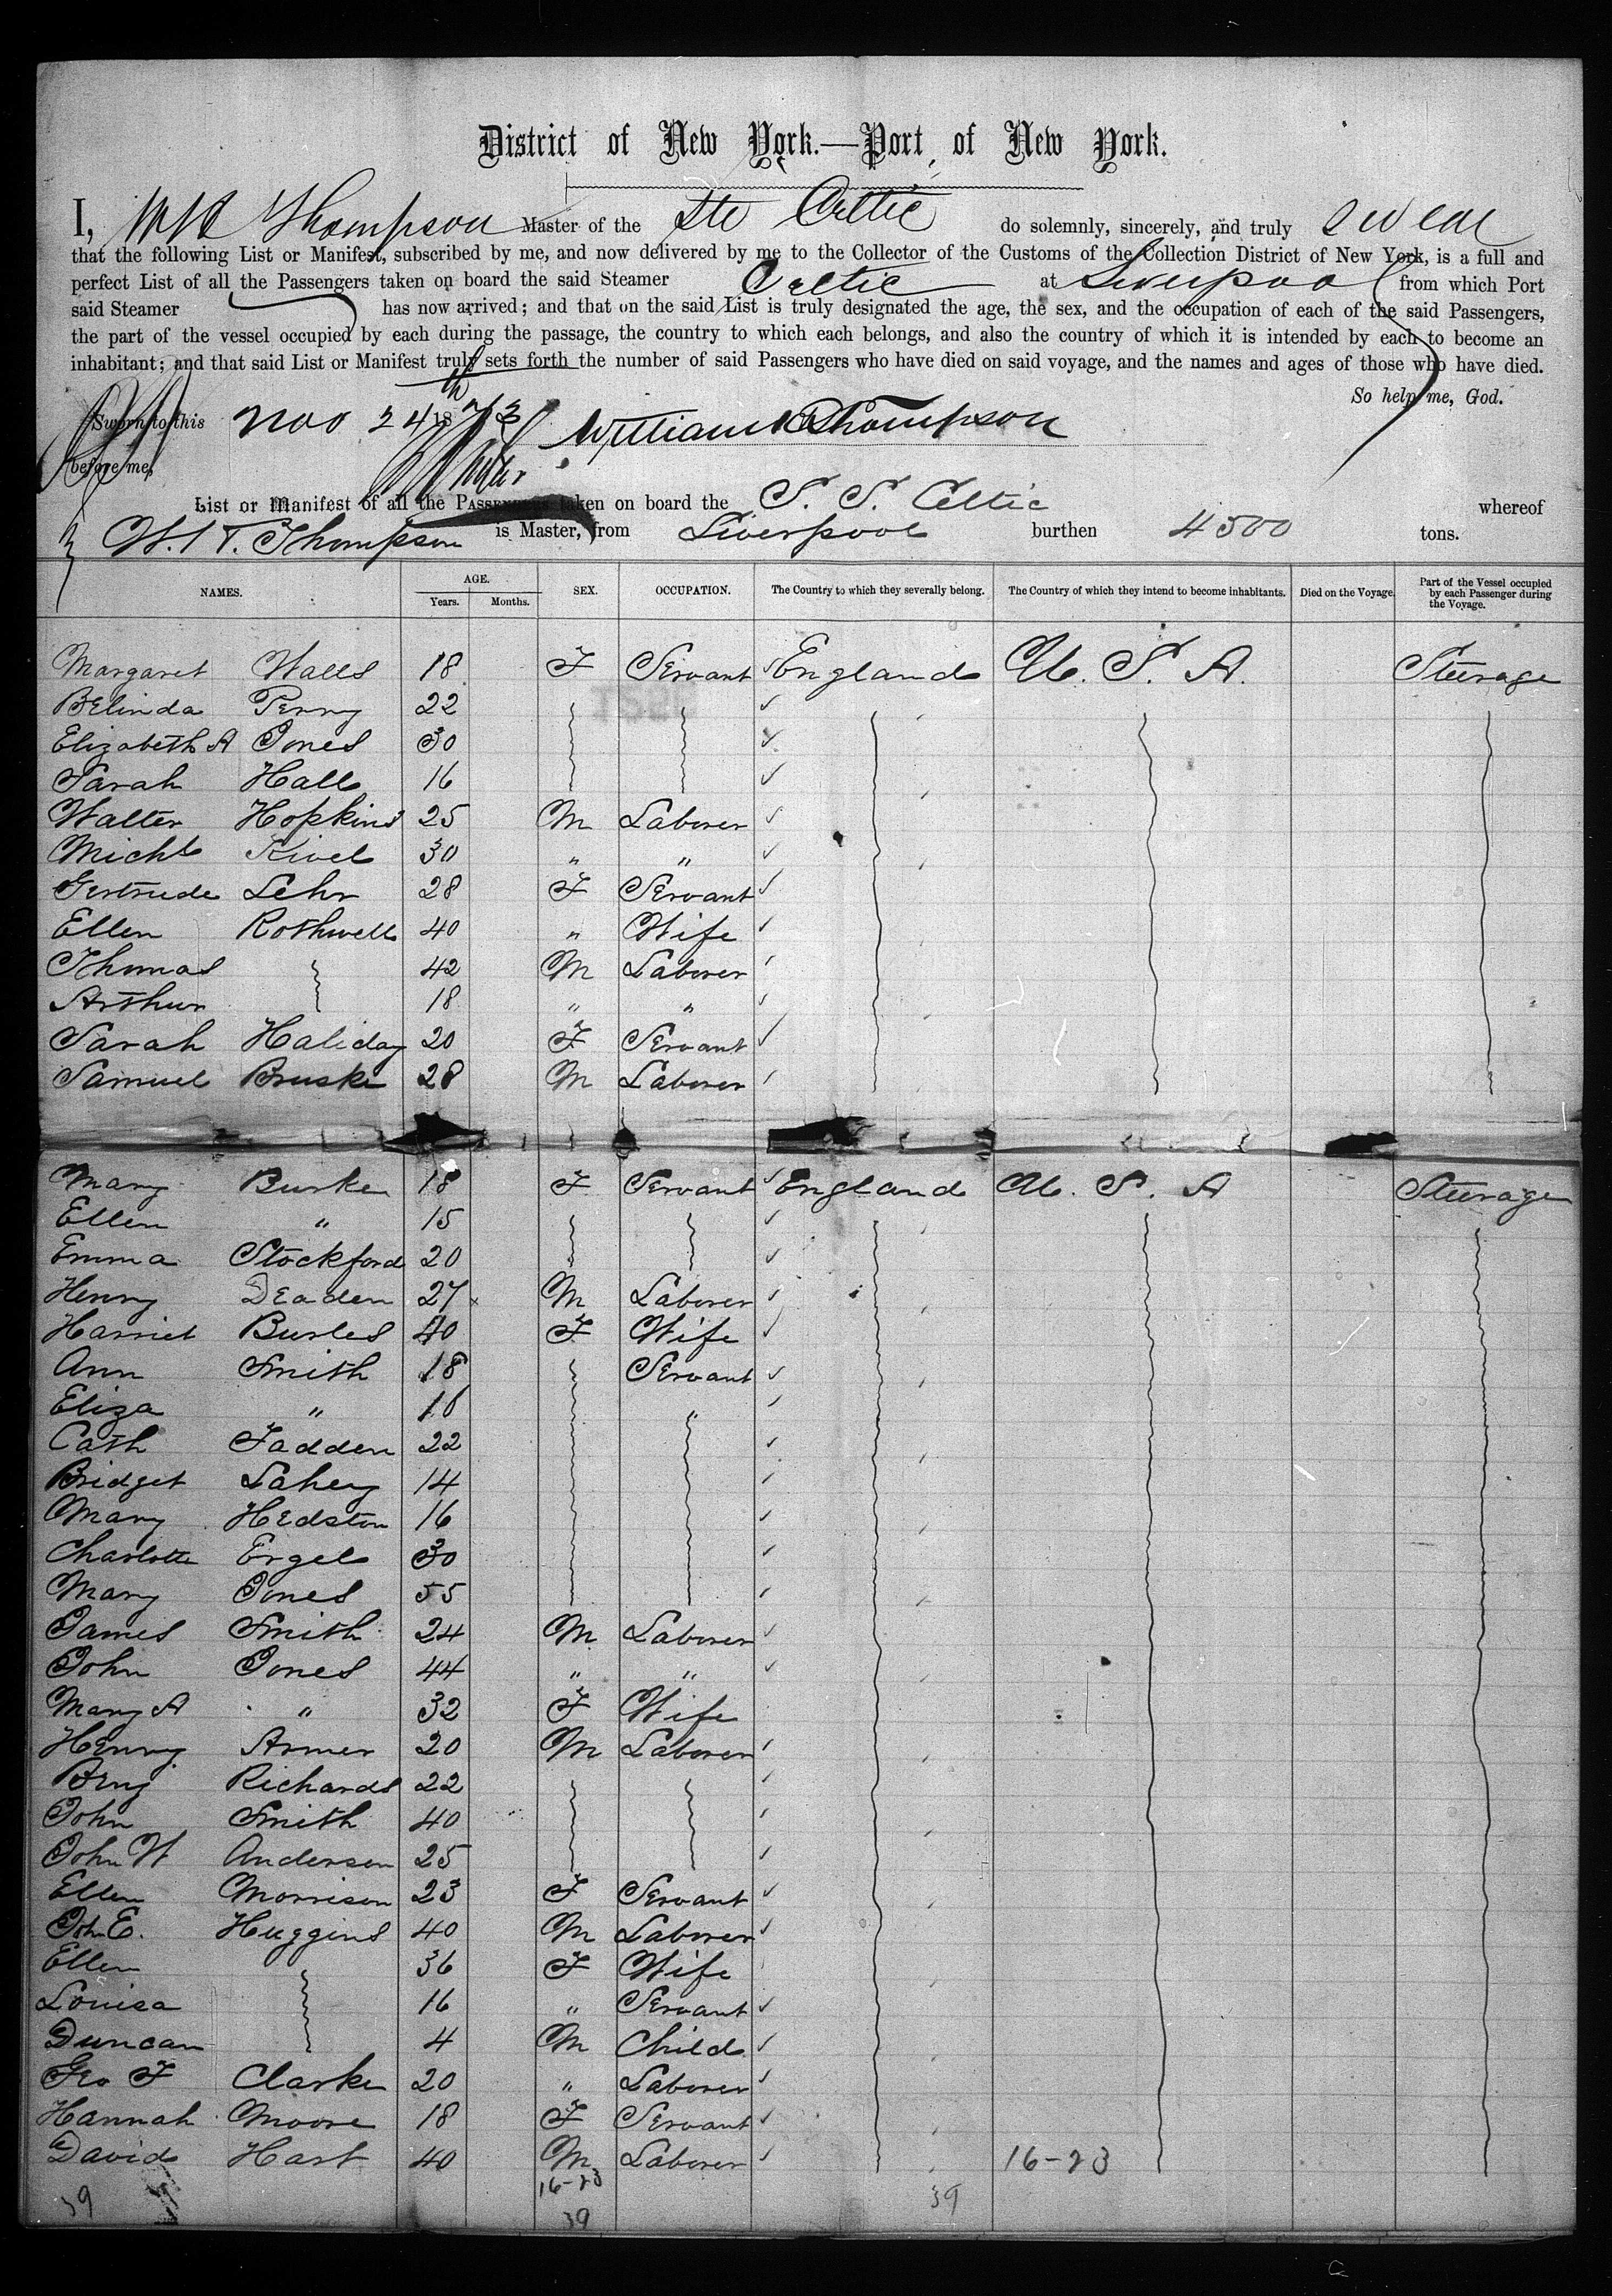 District of New York.—Port of New York.
I, Thompson Master of the Str Celtic do solemnly, sincerely, and truly swear
that the following List or Manifest, subscribed by me, and now delivered by me to the Collector of the Customs of the Collection District of New York, is a full and
perfect List of all the Passengers taken on board the said Steamer Celtic at Liverpool from which Port
said Steamer has now arrived; and that on the said List is truly designated the age, the sex, and the occupation of each of the said Passengers,
the part of the vessel occupied by each during the passage, the country to which each belongs, and also the country of which it is intended by each to become an
inhabitant; and that said List or Manifest truly sets forth the number of said Passengers who have died on said voyage, and the names and ages of those who have died.
So help me, God.
Sworn to this Nov 24th 1873 William Thompson
before me,
List or Manifest of all the Passengers taken on board the S. S. Celtic whereof
Thompson is Master, from Liverpool burthen 4500 tons.
NAMES. AGE. Years. Months. SEX. OCCUPATION. The Country to which they severally belong. The Country of which they intend to become inhabitants. Died on the Voyage. Part of the Vessel occupied by each Passenger during the Voyage.
Margaret Walls 18 F Servant England U. S. A. Steerage
Belinda Perry 22
Elizabeth A Jones 30
Sarah Hall 16
Walter Hopkins 25 M Laborer
Michl Kivel 30 " "
Gertrude Lehr 28 F Servant
Ellen Rothwell 40 " Wife
Thomas 42 M Laborer
Arthur 18 " "
Sarah Haliday 20 F Servant
Samuel Bruske 28 M Laborer
Mary Burke 18 F Servant England U. S. A Steerage
Ellen " 15
Emma Stockford 20
Henry Deaden 27 M Laborer
Harriet Burles 40 F Wife
Ann Smith 18 Servant
Eliza " 16 "
Cath Fadden 22
Bridget Lahey 14
Mary Hedston 16
Charlotte Ergel 30
Mary Jones 55
James Smith 24 M Laborer
John Jones 44 " "
Mary A " 32 F Wife
Henry Armer 20 M Laborer
Benj Richards 22
John Smith 40
John W Anderson 25
Ellen Morrison 23 F Servant
John E. Huggins 40 M Laborer
Ellen 36 F Wife
Louisa 16 " Servant
Duncan 4 M Child
Geo F Clarke 20 " Laborer
Hannah Moore 18 F Servant
David Hart 40 M Laborer 16-23
16-23
39 39 39